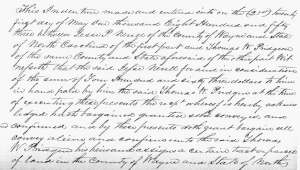 This Indenture made and entered into on the (23rd) twenty
first day of May One thousand Eight Hundred and fifty
three between Jesse P. Barge of the County of Wayne and State
of North Carolina of the first part and Thomas W. Pridgen
of the same County and State aforesaid of the other part Wit-
nesseth that the said Jesse P. for and in consideration
of the sum of Four Hundred and six three dollars to him
in hand paid by him the said Thomas W. Pridgen at the time
of executing these presents the receipt whereof is hereby acknow
ledged hath bargained granted sold conveyed and
confirmed and by these presents doth grant bargain sell
convey alien and confirm unto the said Thomas
W. Pridgen his heirs and assigns a certain tract or parcel
of land in the County of Wayne and State of North